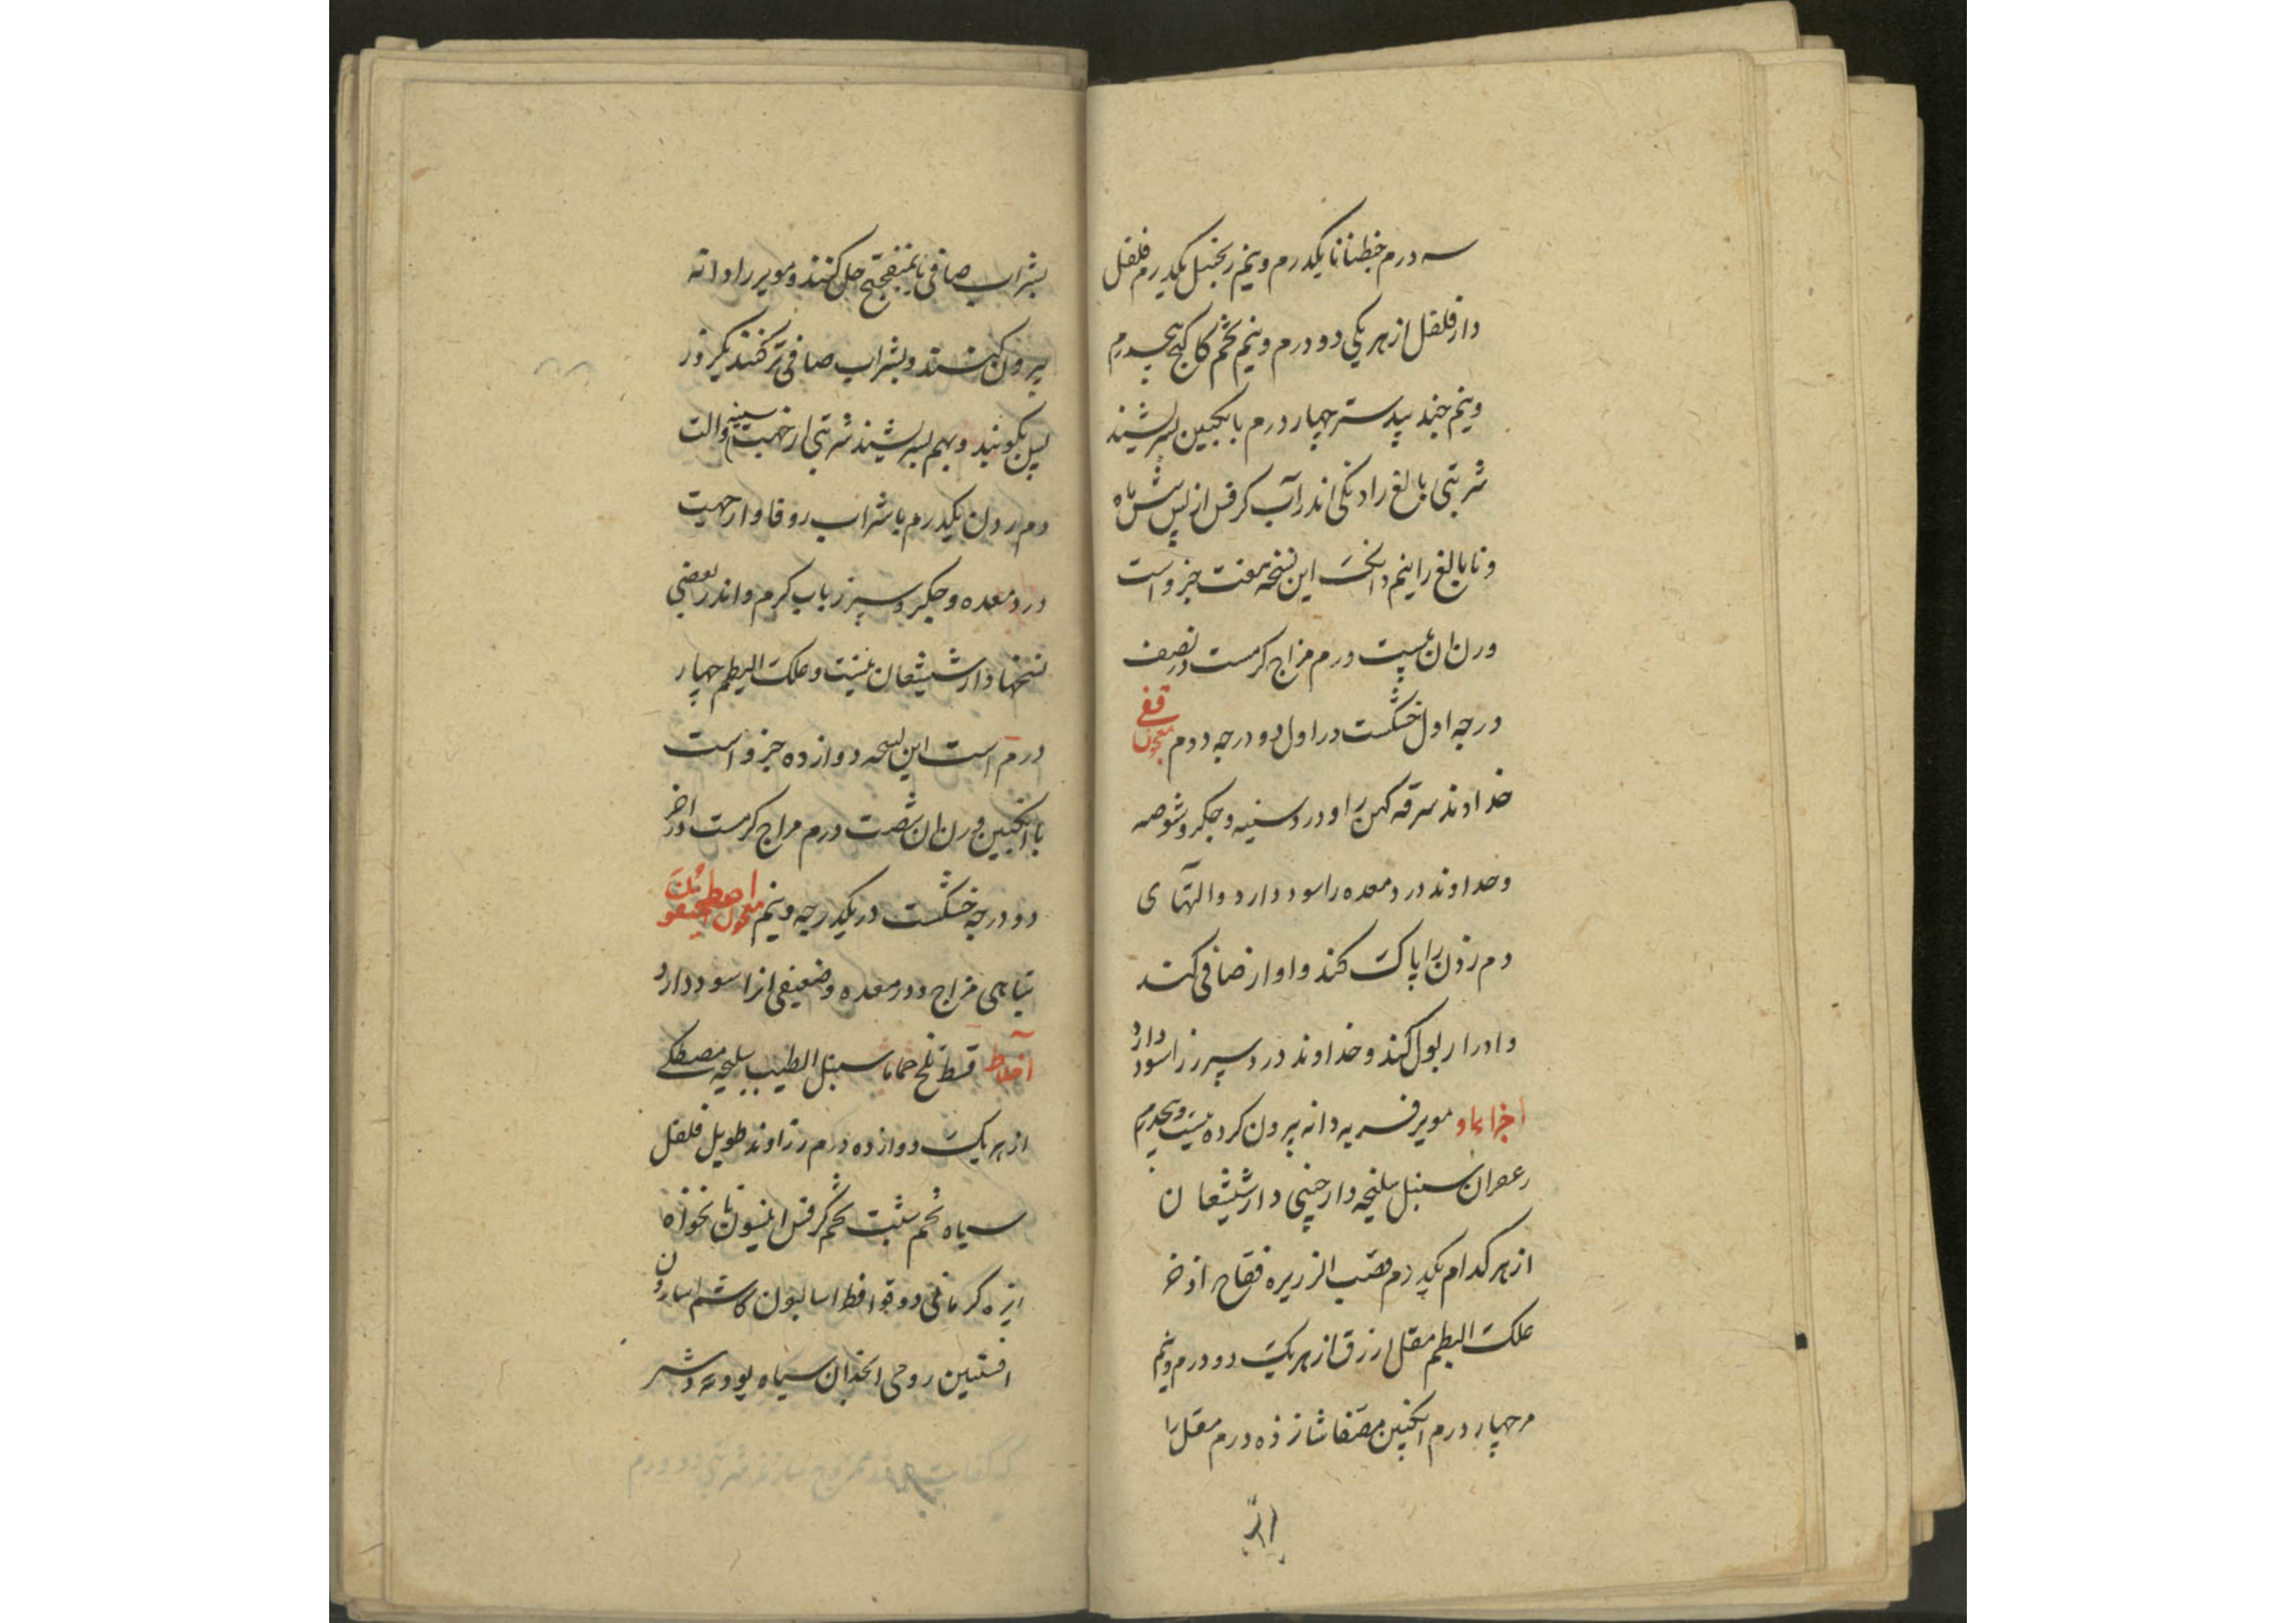 سه درم جنطیانا یکدرم ونیم زنجبیل یکدرم فلفل
دارفلفل از هر یکی دو درم ونیم تخم کاکنج پنجدرم
ونیم جند بیدستر چهار درم با انگبین بسرشند
شربتی بالغ را دنگی اندر آب کرفس از پس شش ماه
و نابالغ را نیم دانگ این نسخه هفت جزو است
وزن ان بیست درم مزاج گرمست در نصف
درجه اول خشکست در اول دو درجه دوم معجون قفی
خداوند سرفه کهن را و درد سینه و جکر و شوصه
و خداوند درد معده را سود دارد و التهای
دم زدن را پاک کند و اواز صافی کند
و ادرار بول کند و خداوند درد سپرز را سود دارد
اجزاء او مویز فربه دانه بیرون کرده بیست وپنجدرم
زعفران سنبل سلیخه دارچینی دارشیشعان
از هر کدام یکدرم قصب الزریره فقاح اذخر
علک البطم مقل ازرق از هر یک دو درم ونیم
مر چهار درم انگبین مصفا شانزده درم مقل را
بشراب صافی یا بمیفختج حل کنند و مویز را دانه
بیرون کنند و بشراب صافی تر کنند یکروز
پس بکوبند و بهم بسرشند شربتی از جهت سینه و الت
دم زدن یکدرم با شراب زوفا و از جهت
درد معده و جکر و سپرز باب کرم و اندر بعضی
نسخها دارشیشعان نیست و علک البطم چهار
درم است این نسخه دوازده جزو است
با انگبین وزن ان شصت درم مزاج کرمست در اخر
دو درجه خشکست در یکدرجه ونیم معجون اصطمخیقون
تباهی مزاج و درد معده و ضعیفی انرا سود دارد
اخلاط قسط تلخ حماما سنبل الطیب سلیخه مصطکی
از هر یک دوازده درم زراوند طویل فلفل
سیاه تخم شبت تخم کرفس انیسون نانخواه
زیره کرمانی دوقو افطراسالیون کاشم اسارون
افسنتین رومی انجدان سیاه پودنه دشتی